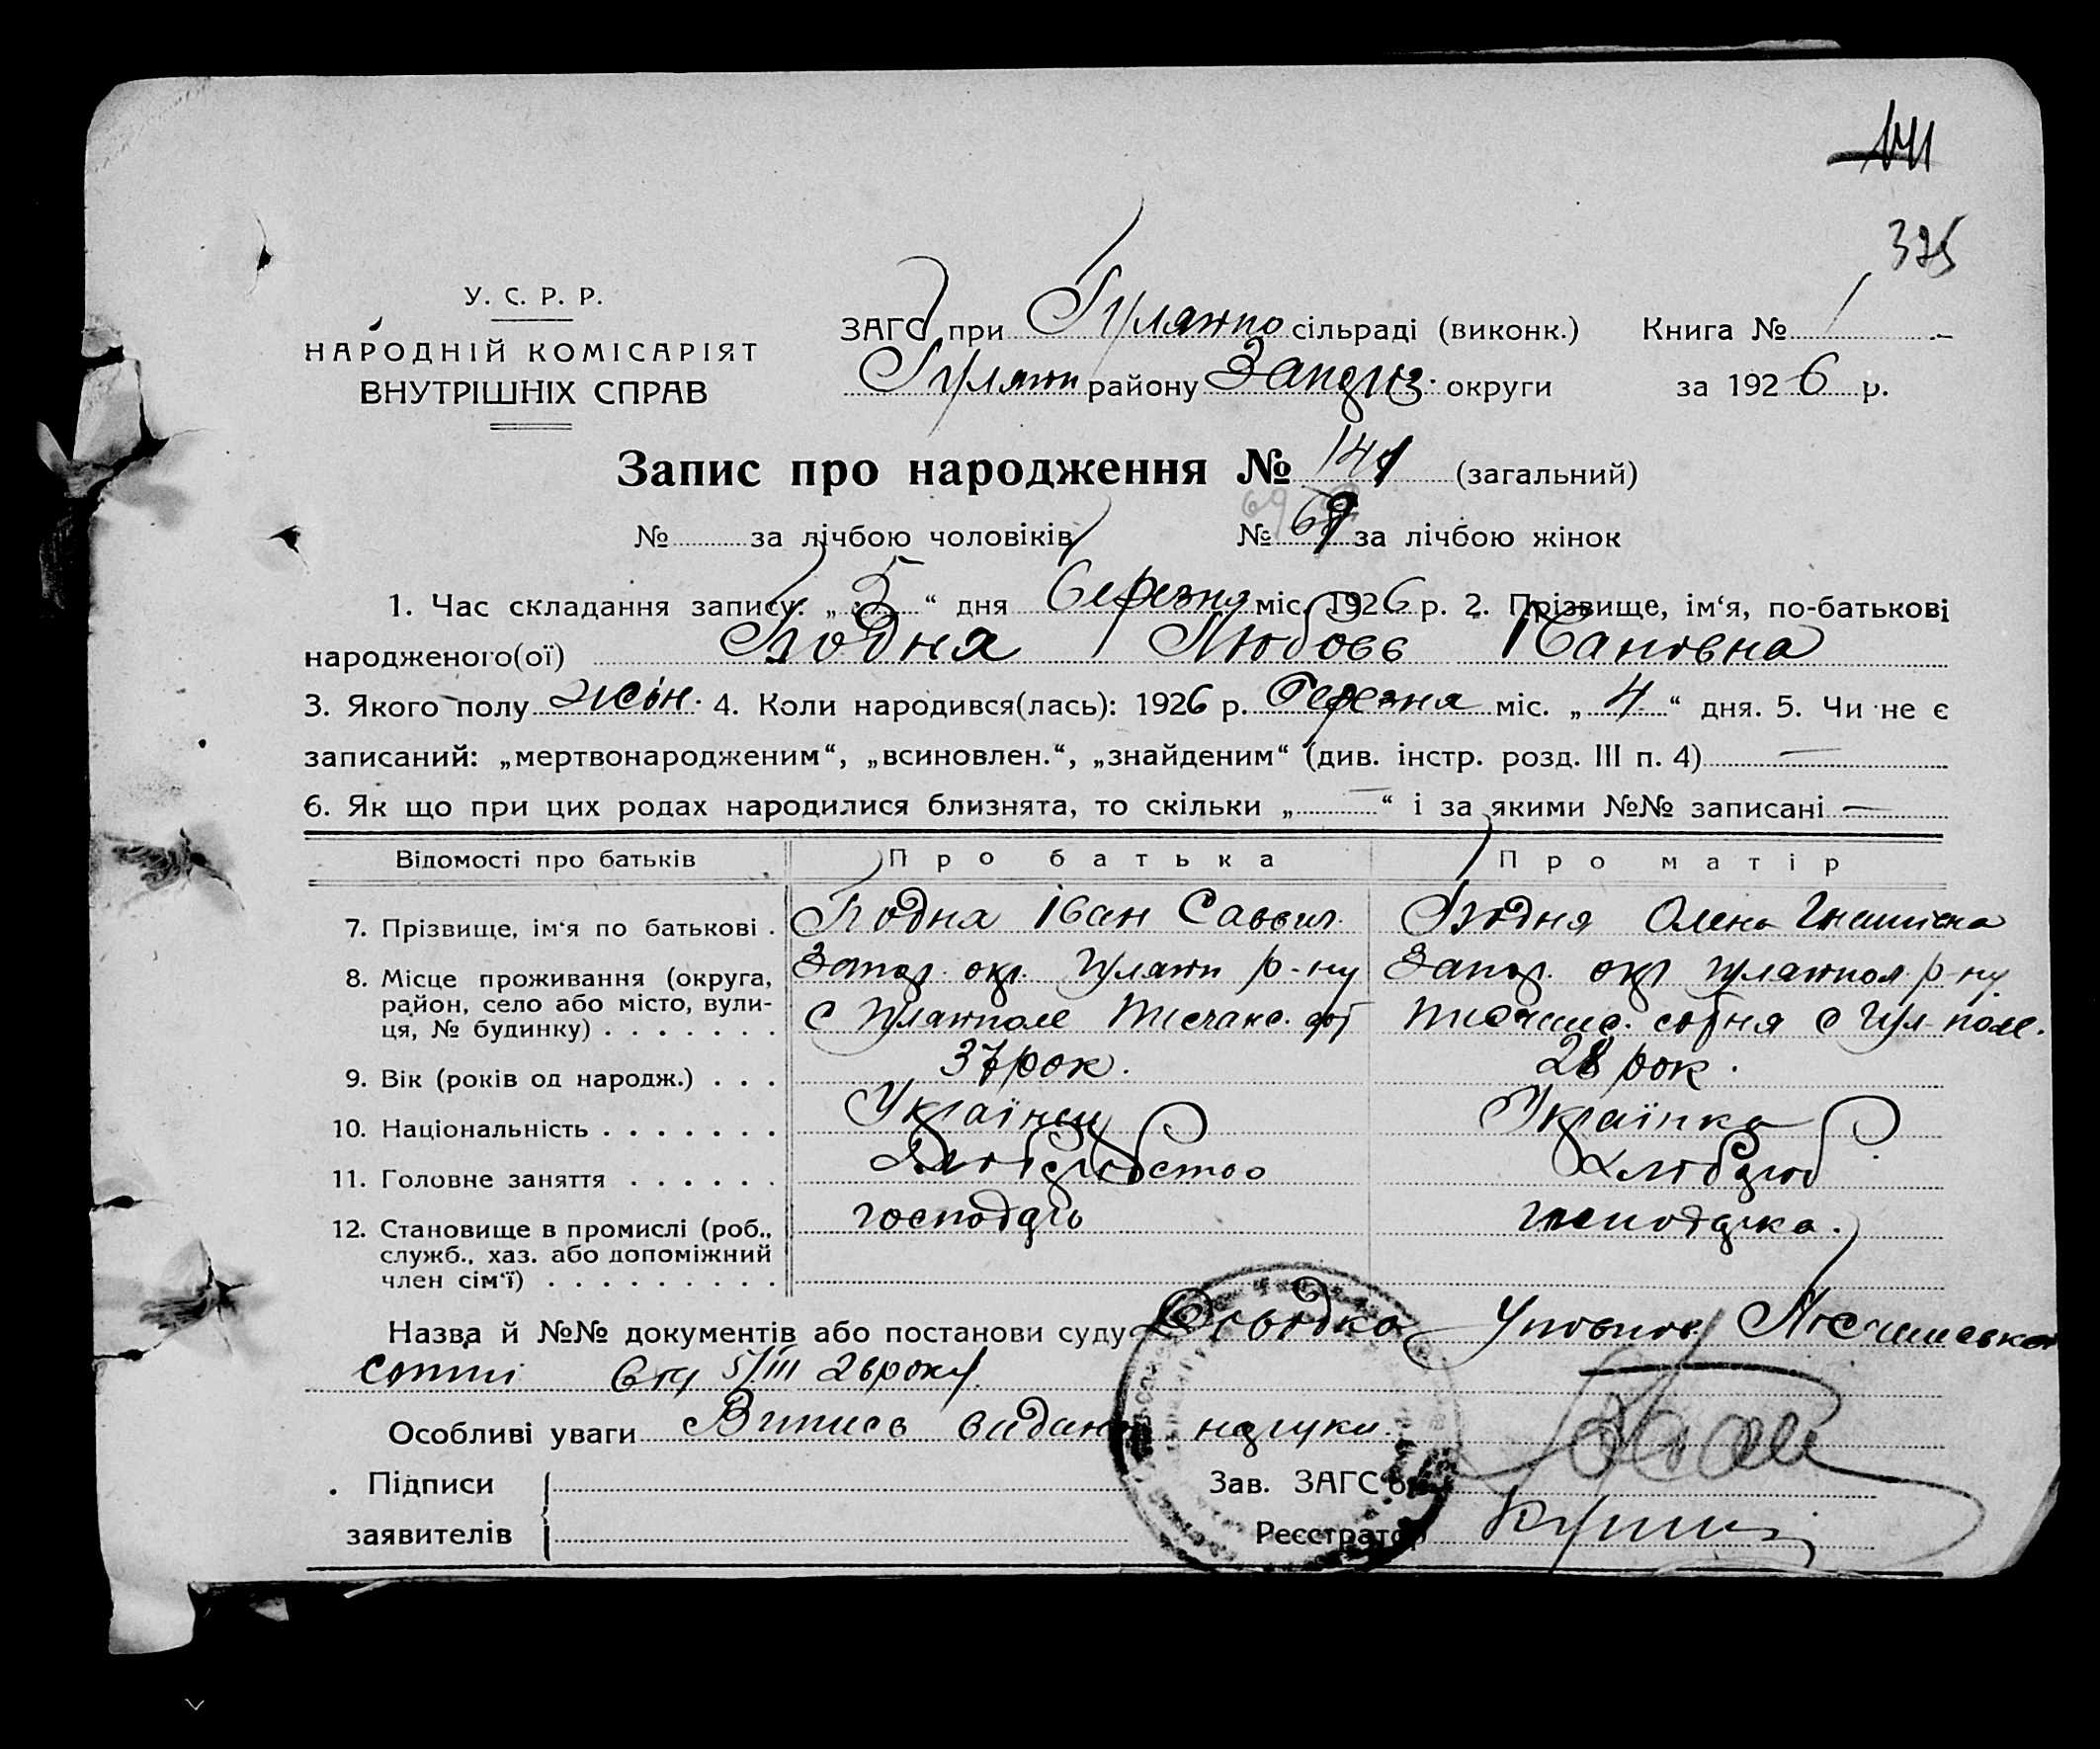 325
У. С. Р. Р.
НАРОДНІЙ КОМІСАРІЯТ
ВНУТРІШНІХ СПРАВ
ЗАГС при Гуляйпо сільраді (виконк.) Книга № 1
Гуляйп району Запоріз. округи за 1926 р.
Запис про народження № 141 (загальний)
№ за лічбою чоловіків № 69 за лічбою жінок
1. Час складання запису: „5“ дня березня міс. 1926 р. 2. Прізвище, ім‘я, по-батькові
народженого(ої) Любовь
3. Якого полу жін. 4. Коли народився(лась): 1926 р. березня міс. „4“ дня. 5. Чи не є
записаний: „мертвонародженим“, „всиновлен.“, „знайденим“ (див. інстр. розд. III п. 4) —
6. Як що при цих родах народилися близнята, то скільки „—“ і за якими №№ записані —
Відомості про батьків Про батька Про матір
7. Прізвище, ім‘я по батькові . Іван Саввич Олена
8. Місце проживання (округа, район, село або місто, вулиця, № будинку) Запор. окр. Гуляйп р-ну Запор. окр Гуляйпол. р-ну
с Гуляйполе сотня с Гул-поле.
9. Вік (років од народж.) . . . 37 рок. 28 рок.
10. Національність . . . . . . . Українец Українка
11. Головне заняття . . . . . . Хліборобство Хлібороб
12. Становище в промислі (роб., служб., хаз. або допоміжний член сім‘ї) . . . . . . . . . господарь господарка.
Назва й №№ документів або постанови суду
сотні від 5/III 26 року.
Особливі уваги Випись видана на руки.
Підписи
заявителів
Зав. ЗАГС‘ом
Реєстратор